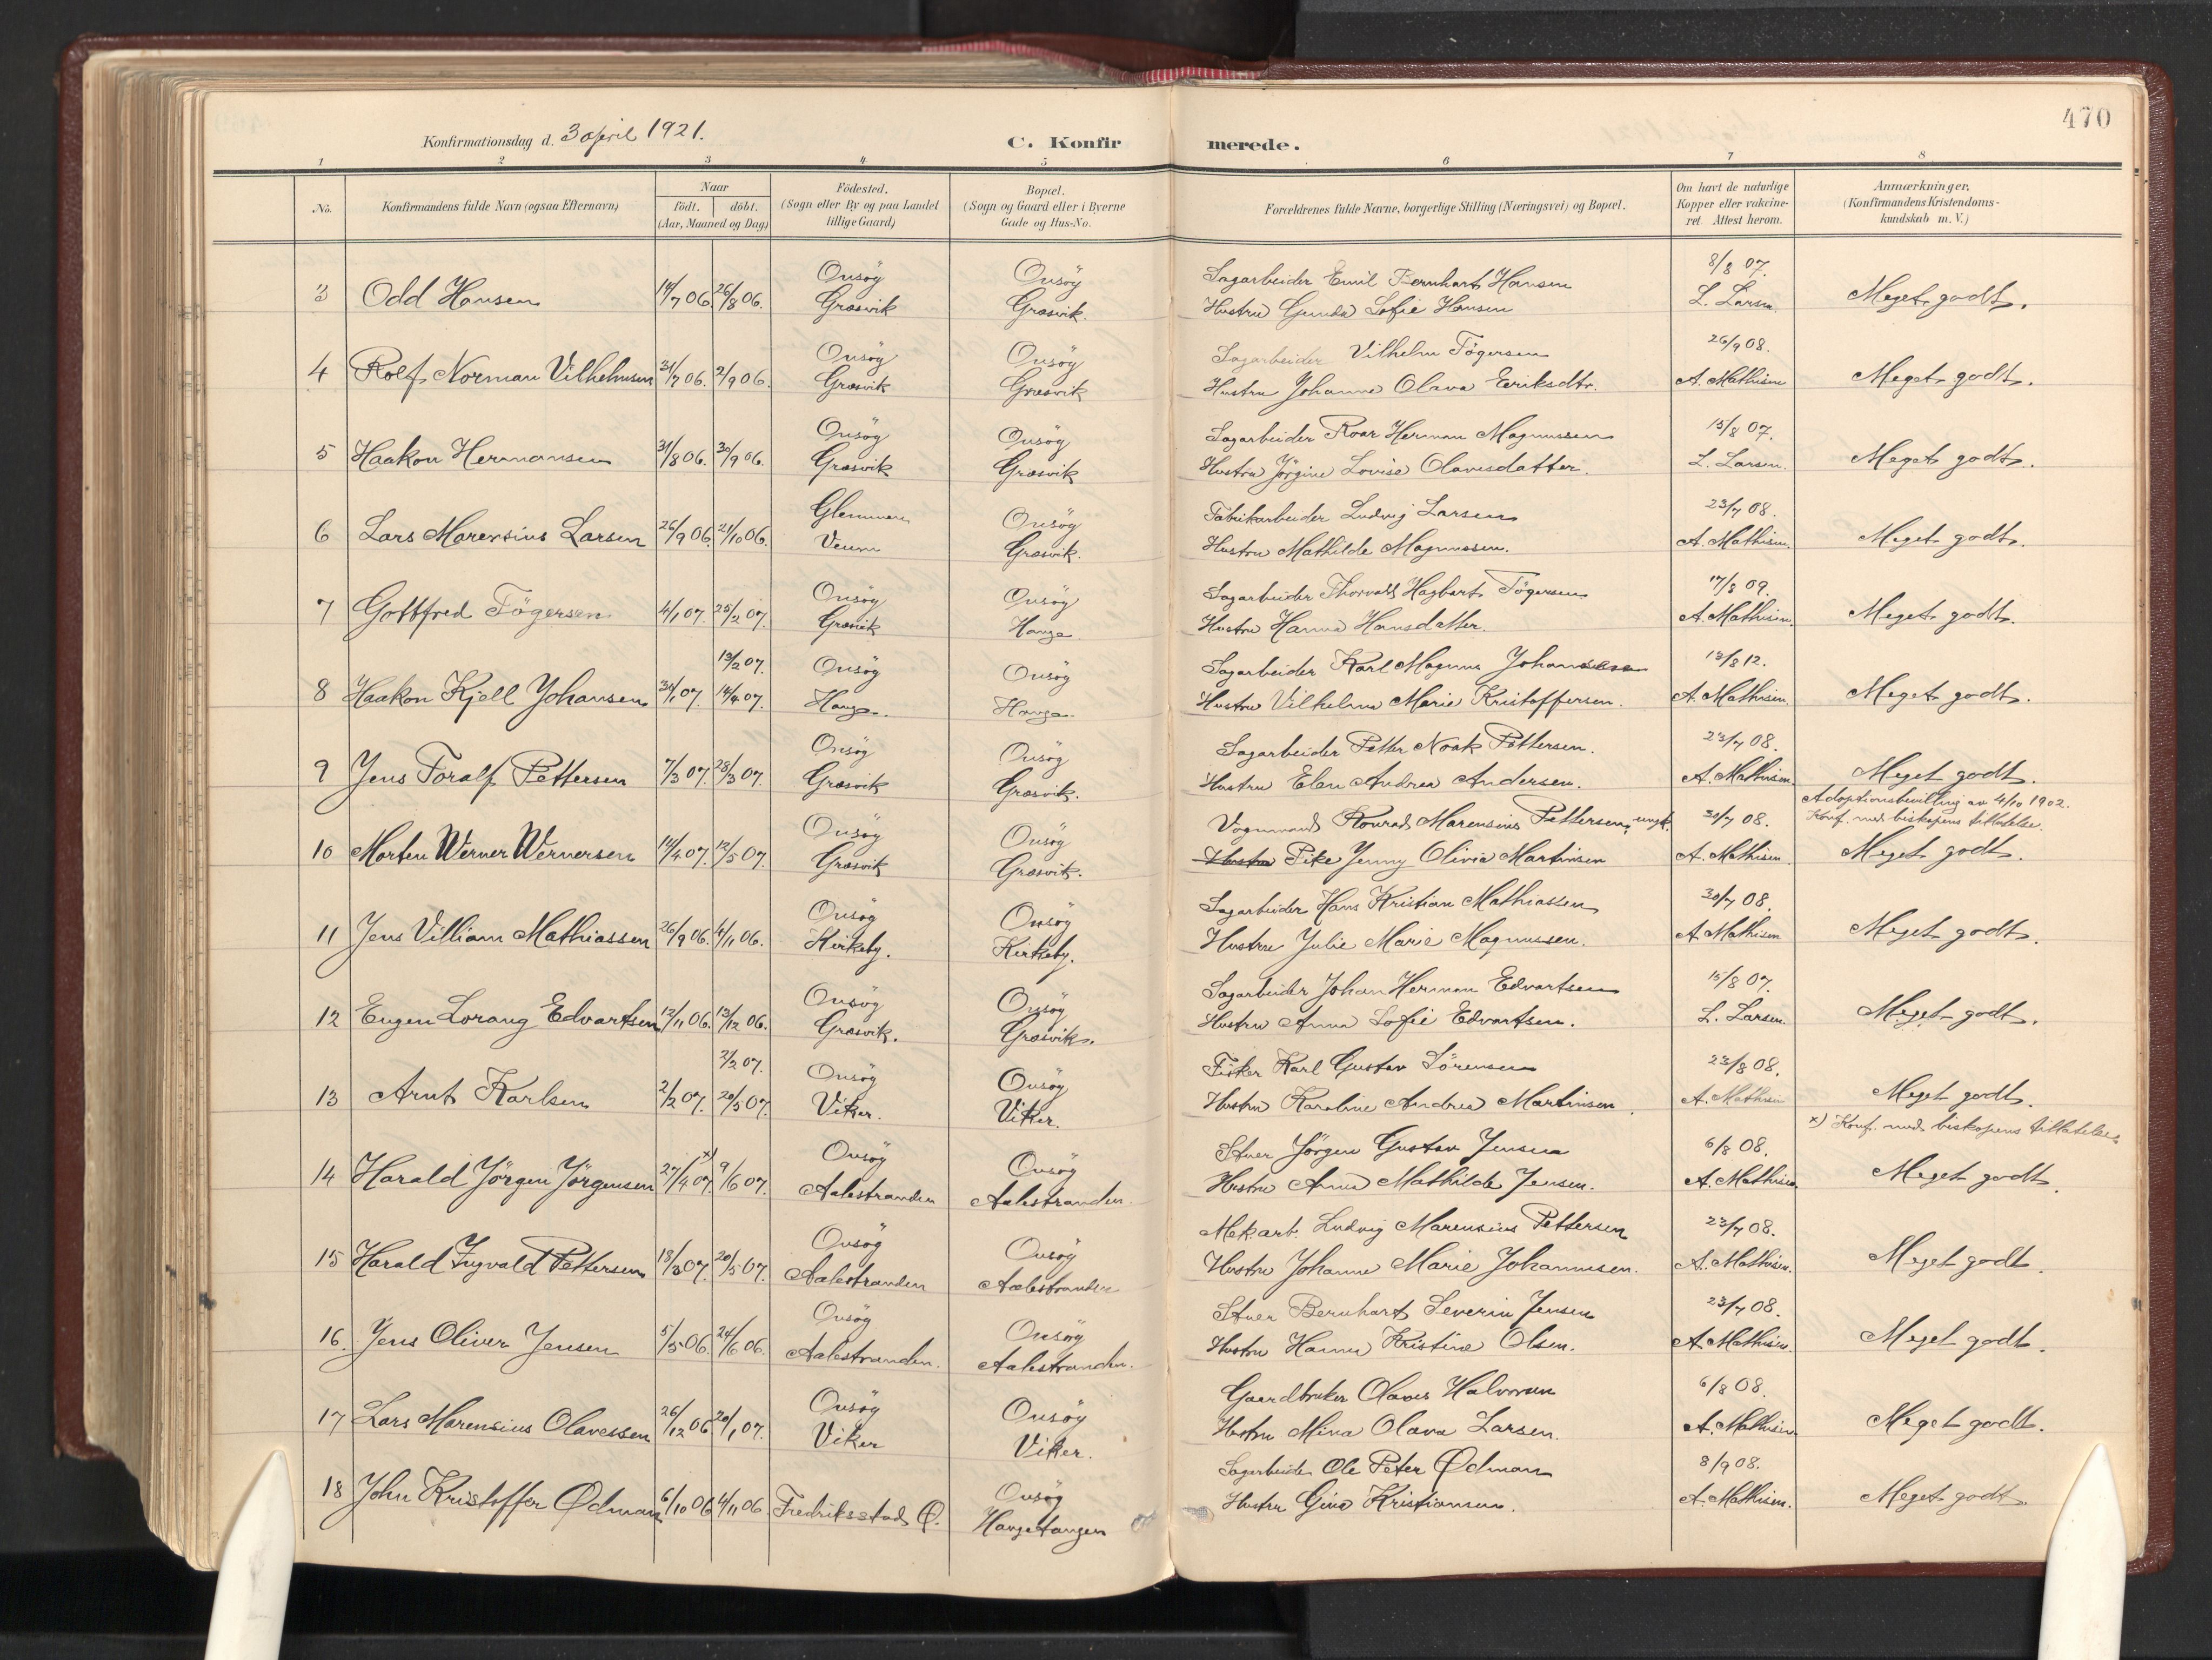 470
Konfirmationsdag d. 3 april 1921.
C. Konfirmerede.
1 2 3 4 5 6 7 8
No. Konfirmandens fulde Navn (ogsaa Efternavn) Naar födt. döbt. (Aar, Maaned og Dag) Födested. (Sogn eller By og paa Landet tillige Gaard) Bopæl. (Sogn og Gaard eller i Byerne Gade og Hus-No. Forældrenes fulde Navne, borgerlige Stilling (Næringsvei) og Bopæl. Om havt de naturlige Kopper eller vakcineret. Attest herom. Anmærkninger. (Konfirmandens Kristendomskundskab m. V.)
Onsöy Onsöy Sagarbeider Emil Bernhart Hansen 8/8 07.
3 Odd Hansen 14/7 06. 26/8 06. Græsvik Græsvik. Hustru Gunda Sofie Hansen L. Larsen Meget godt.
Onsöy Onsöy Sagarbeider Vilhelm Tögersen 26/9 08.
4 Rolf Norman Vilhelmsen 31/7 06. 2/9 06. Græsvik Græsvik Hustru Johanne Olava Eriksdtr. A. Mathisen Meget godt.
Onsöy Onsöy Sagarbeider Roar Herman Magnussen 15/8 07.
5 Haakon Hermansen 31/8 06. 30/9 06. Græsvik Græsvik Hustru Jörgine Lovise Olavesdatter. L. Larsen. Meget godt.
Glemmen Onsöy Fabrikarbeider Ludvig Larsen 23/7 08.
6 Lars Marensius Larsen 26/9 06. 21/10 06. Veum Græsvik. Hustru Mathilde Magnussen. A. Mathisen. Meget godt.
Onsöy Onsöy Sagarbeider Thorvald Hagbart Tögersen 17/8 09.
7 Gottfred Tögersen 4/1 07. 25/2 07. Græsvik Hauge. Hustru Hanna Hansdatter. A. Mathisen. Meget godt.
13/2 07. Onsöy Onsöy Sagarbeider Karl Magnus Johansen 13/8 12.
8 Haakon Kjell Johansen 30/1 07. 14/4 07. Hauge. Hauge. Hustru Vilhelma Marie Kristoffersen. A. Mathisen. Meget godt.
Onsöy Onsöy Sagarbeider Petter Noak Pettersen. 23/7 08.
9 Jens Toralf Pettersen 7/3 07. 28/3 07. Græsvik Græsvik. Hustru Elen Andrea Andersen. A. Mathisen. Meget godt.
Onsöy Onsöy Vognmand Konrad Marensius Pettersen, ungk. 30/7 08. Adoptionsbevilling av 4/10 1902. Konf. med biskopens tilladelse.
10 Morten Werner Wernersen 14/4 07. 12/5 07. Græsvik Græsvik. Hustru Pike Jenny Olivia Martinsen A. Mathisen. Meget godt.
Onsöy Onsöy Sagarbeider Hans Kristian Mathiassen 30/7 08.
11 Jens Villiam Mathiassen 26/9 06. 4/11 06. Kirkeby. Kirkeby. Hustru Julie Marie Magnussen. A. Mathisen Meget godt.
Onsöy Onsöy Sagarbeider Johan Herman Edvartsen 15/8 07.
12 Eugen Lorang Edvartsen 12/11 06. 13/12 06. Græsvik. Græsvik. Hustru Anna Sofie Edvartsen. L. Larsen. Meget godt.
2/2 07. Onsöy Onsöy Fisker Karl Gustav Sörensen 23/8 08.
13 Arnt Karlsen 2/2 07. 20/5 07. Viker. Viker. Hustru Karoline Andrea Martinsen. A. Mathisen Meget godt.
Onsöy Onsöy Stuer Jörgen Gustav Jensen 6/8 08. x) Konf. med biskopens tilladelse
14 Harald Jörgen Jörgensen 27/4 07. x) 9/6 07. Aalestranden Aalestranden. Hustru Anna Mathilde Jensen. A. Mathisen. Meget godt.
Onsöy Onsöy Mek. arb. Ludvig Marensius Pettersen 23/7 08.
15 Harald Ingvald Pettersen 18/3 07. 20/5 07. Aalestranden Aalestranden Hustru Johanne Marie Johannesen. A. Mathisen. Meget godt.
Onsöy Onsöy Stuer Bernhart Severin Jensen 23/7 08.
16. Jens Oliver Jensen 5/5 06. 24/6 06. Aalestranden. Aalestranden. Hustru Hanna Kristine Olsen. A. Mathisen. Meget godt.
Onsöy Onsöy Gaardbruker Olaves Halvorsen 6/8 08.
17 Lars Marensius Olavessen 26/12 06 20/1 07. Viker Viker. Hustru Mina Olava Larsen. A. Mathisen. Meget godt.
Onsöy Sagarbeider Ole Peter Ødman 8/9 08.
18 John Kristoffer Ødman 6/10 06 4/11 06. Fredriksstad Ø. Haugetangen Hustru Gina Kristiansen. A. Mathisen. Meget godt.